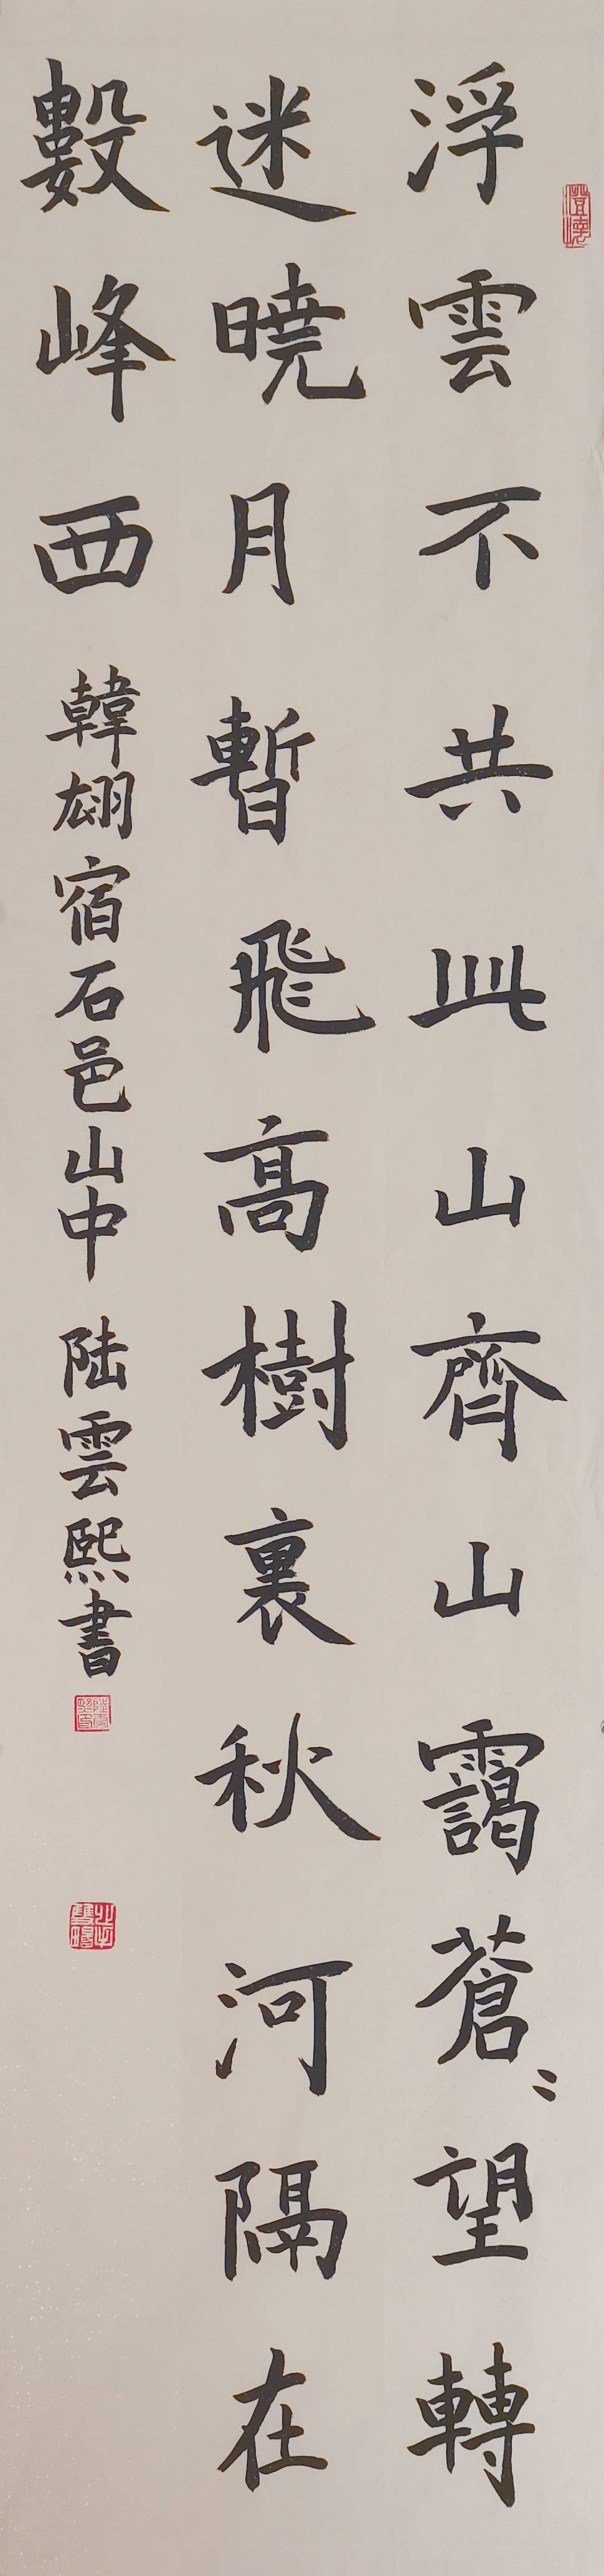 浮雲不共此山齊山靄蒼〻望轉
迷曉月暫飛高樹裏秋河隔在
數峰西
韓翃宿石邑山中 陆雲熙書